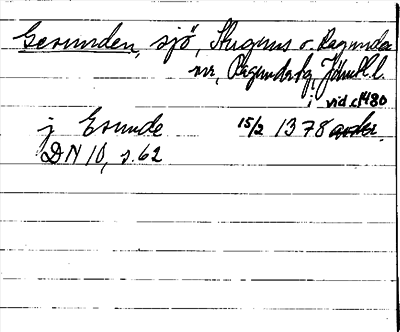 Gesunden, sjö, Stuguns o. Ragunda
snr, Ragunda tg, Jämtl. l.
i vid. c1480
j Esunde 15/2 1378
DN 10, s. 62